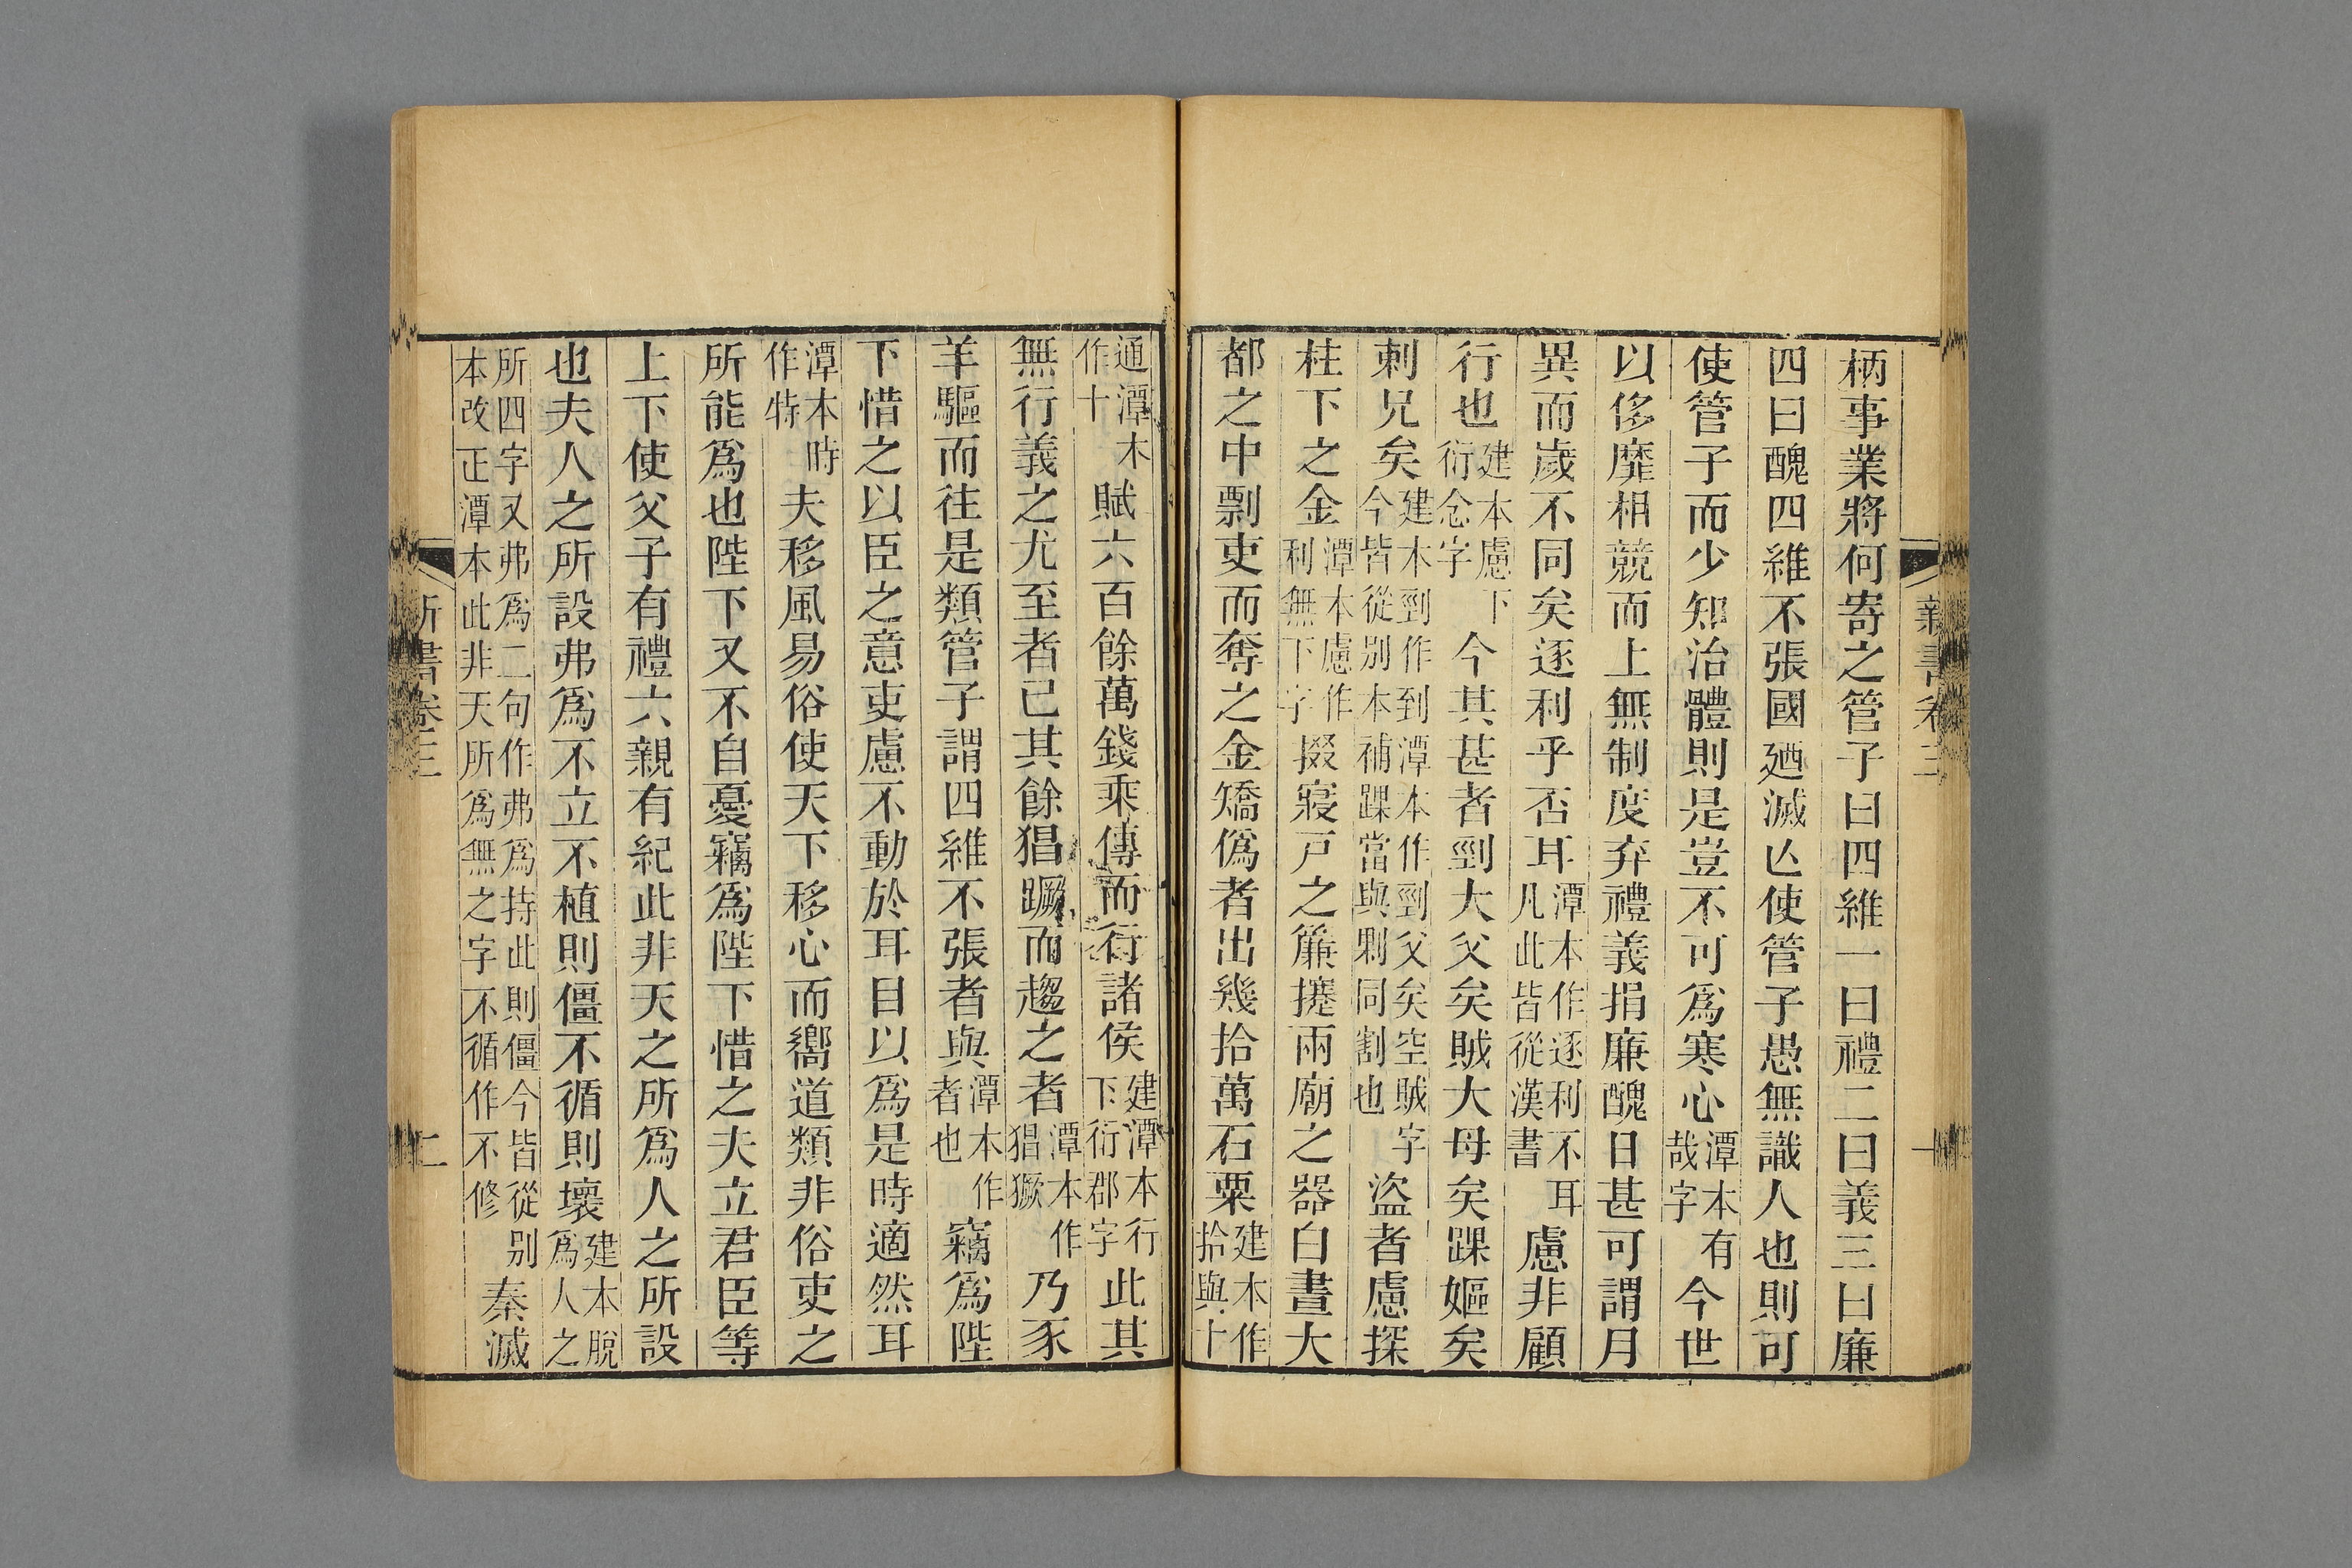 新書卷三
一
柄事業將何寄之管子曰四維一曰禮二曰義三曰廉
四曰醜四維不張國廼滅亾使管子愚無識人也則可
使管子而少知治體則是豈不可爲寒心潭本有哉字今世
以侈靡相競而上無制度弃禮義捐廉醜日甚可謂月
異而歲不同矣逐利乎否耳潭本作逐利不耳凡此皆從漢書慮非顧
行也建本慮下衍念字今其甚者剄大父矣賊大母矣踝嫗矣
刺兄矣建本剄作到潭本作剄父矣空賊字今皆從别本補踝當與剿同割也盜者慮探
柱下之金潭本慮作利無下字掇寢戸之簾攓兩廟之器白晝大
都之中剽吏而奪之金矯僞者出幾拾萬石粟建本作拾與十
通潭本作十賦六百餘萬錢乘傳而行諸侯建潭本行下衍郡字此其
無行義之尤至者已其餘猖蹶而趨之者潭本作猖獗乃豕
羊驅而往是類管子謂四維不張者與潭本作者也竊爲陛
下惜之以臣之意吏慮不動於耳目以爲是時適然耳
潭本時作特夫移風易俗使天下移心而嚮道類非俗吏之
所能爲也陛下又不自憂竊爲陛下惜之夫立君臣等
上下使父子有禮六親有紀此非天之所爲人之所設
也夫人之所設弗爲不立不植則僵不循則壞建本脫爲人之
所四字又弗爲二句作弗爲持此則僵今皆從别本改正潭本此非天所爲無之字不循作不修秦滅
新書卷三
二